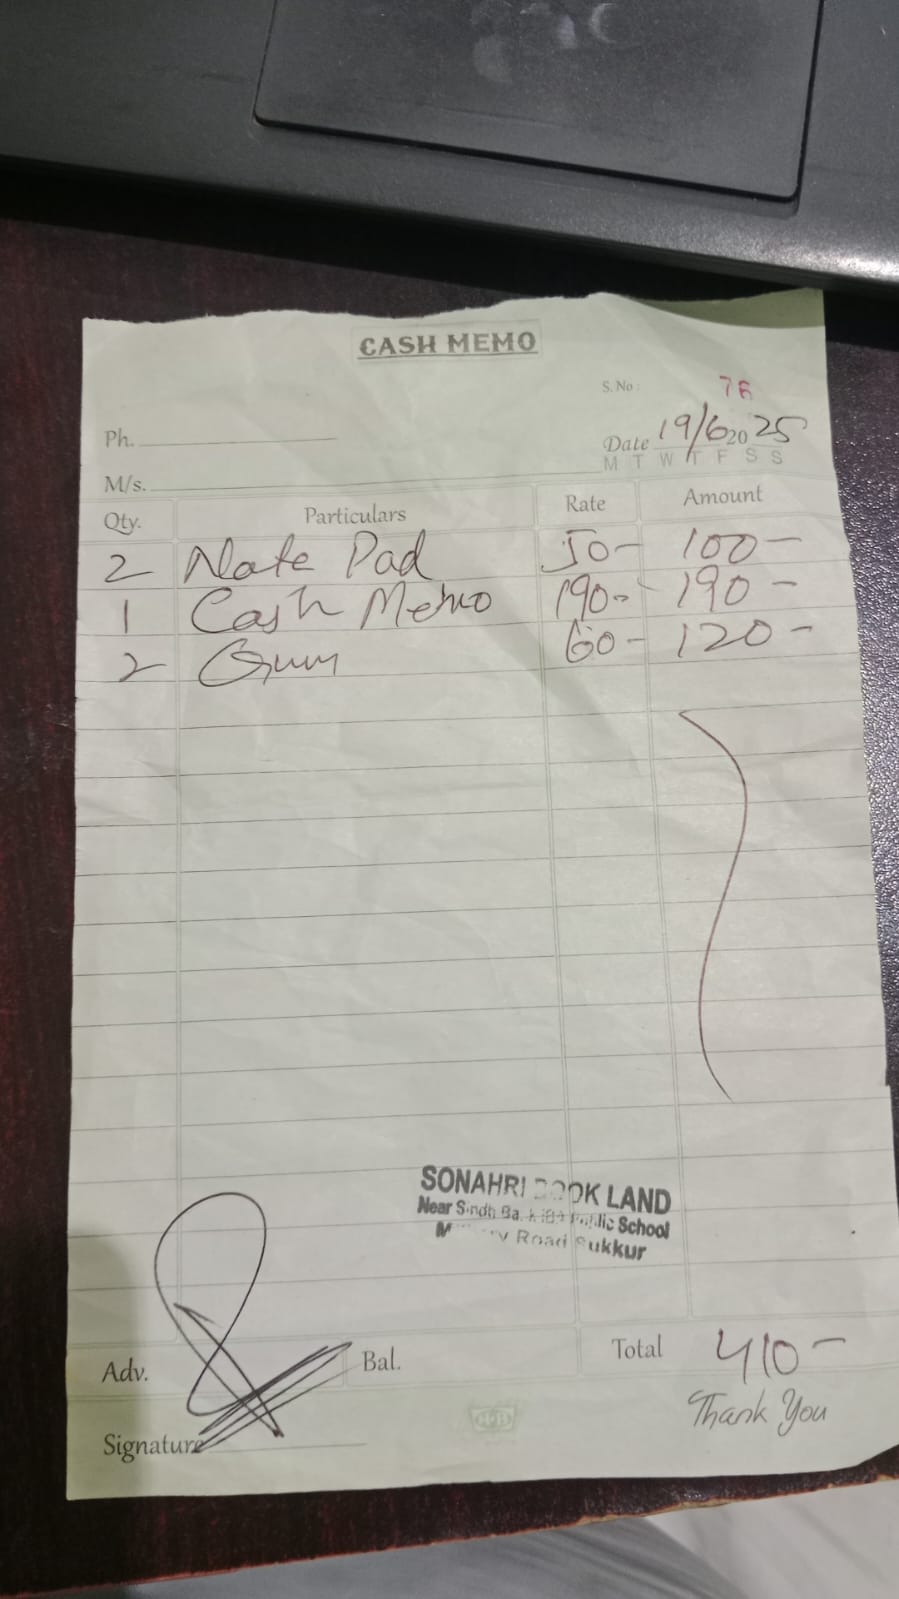 CASH MEMO
S. No: 76
Ph.
Date 19/6 2025
M T W T F S S
M/s.
Qty. Particulars Rate Amount
2 Note Pad 50- 100-
1 Cash Memo 190- 190-
2 Gum 60- 120-
SONAHRI BOOK LAND
Near Sindh Public School
Road Sukkur
Adv. Bal. Total 410-
Thank You
Signature